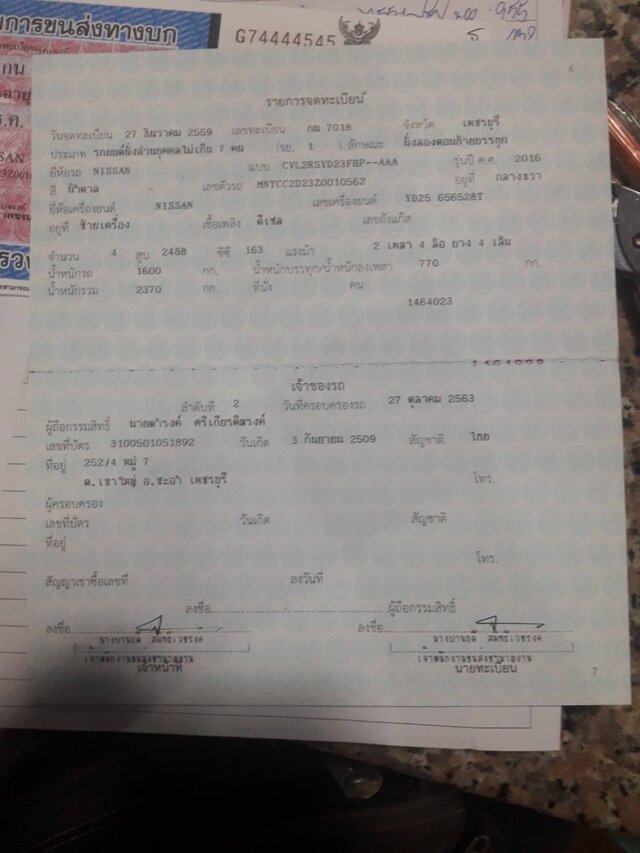 การขนส่งทางบก
G74444545
6
รายการจดทะเบียน
วันจดทะเบียน 27 ธันวาคม 2559 เลขทะเบียน กน 7018 จังหวัด เพชรบุรี
ประเภท รถยนต์นั่งส่วนบุคคลไม่เกิน 7 คน (รย. 1 ) ลักษณะ นั่งสองตอนท้ายบรรทุก
ยี่ห้อรถ NISSAN แบบ CVL2RSYD23FHP--AAA รุ่นปี ค.ศ. 2016
สี น้ำตาล เลขตัวรถ MNTCC2D23Z0010562 อยู่ที่ กลางขวา
ยี่ห้อเครื่องยนต์ NISSAN เลขเครื่องยนต์ YD25 656528T
อยู่ที่ ซ้ายเครื่อง เชื้อเพลิง ดีเซล เลขถังแก๊ส
จำนวน 4 สูบ 2488 ซีซี 163 แรงม้า 2 เพลา 4 ล้อ ยาง 4 เส้น
น้ำหนักรถ 1600 กก. น้ำหนักบรรทุก/น้ำหนักลงเพลา 770 กก.
น้ำหนักรวม 2370 กก. ที่นั่ง คน
1464023
เจ้าของรถ
ลำดับที่ 2 วันที่ครอบครองรถ 27 ตุลาคม 2563
ผู้ถือกรรมสิทธิ์ นายดำรงค์ ศรีเกียรติณรงค์
เลขที่บัตร 3100501051892 วันเกิด 3 กันยายน 2509 สัญชาติ ไทย
ที่อยู่ 252/4 หมู่ 7
ต.เขาใหญ่ อ.ชะอำ เพชรบุรี โทร.
ผู้ครอบครอง
เลขที่บัตร วันเกิด สัญชาติ
ที่อยู่
โทร.
สัญญาเช่าซื้อเลขที่ ลงวันที่
ลงชื่อ ผู้ถือกรรมสิทธิ์
ลงชื่อ ลงชื่อ
เจ้าพนักงานขนส่งชำนาญงาน เจ้าพนักงานขนส่งชำนาญงาน
เจ้าหน้าที่ นายทะเบียน
7